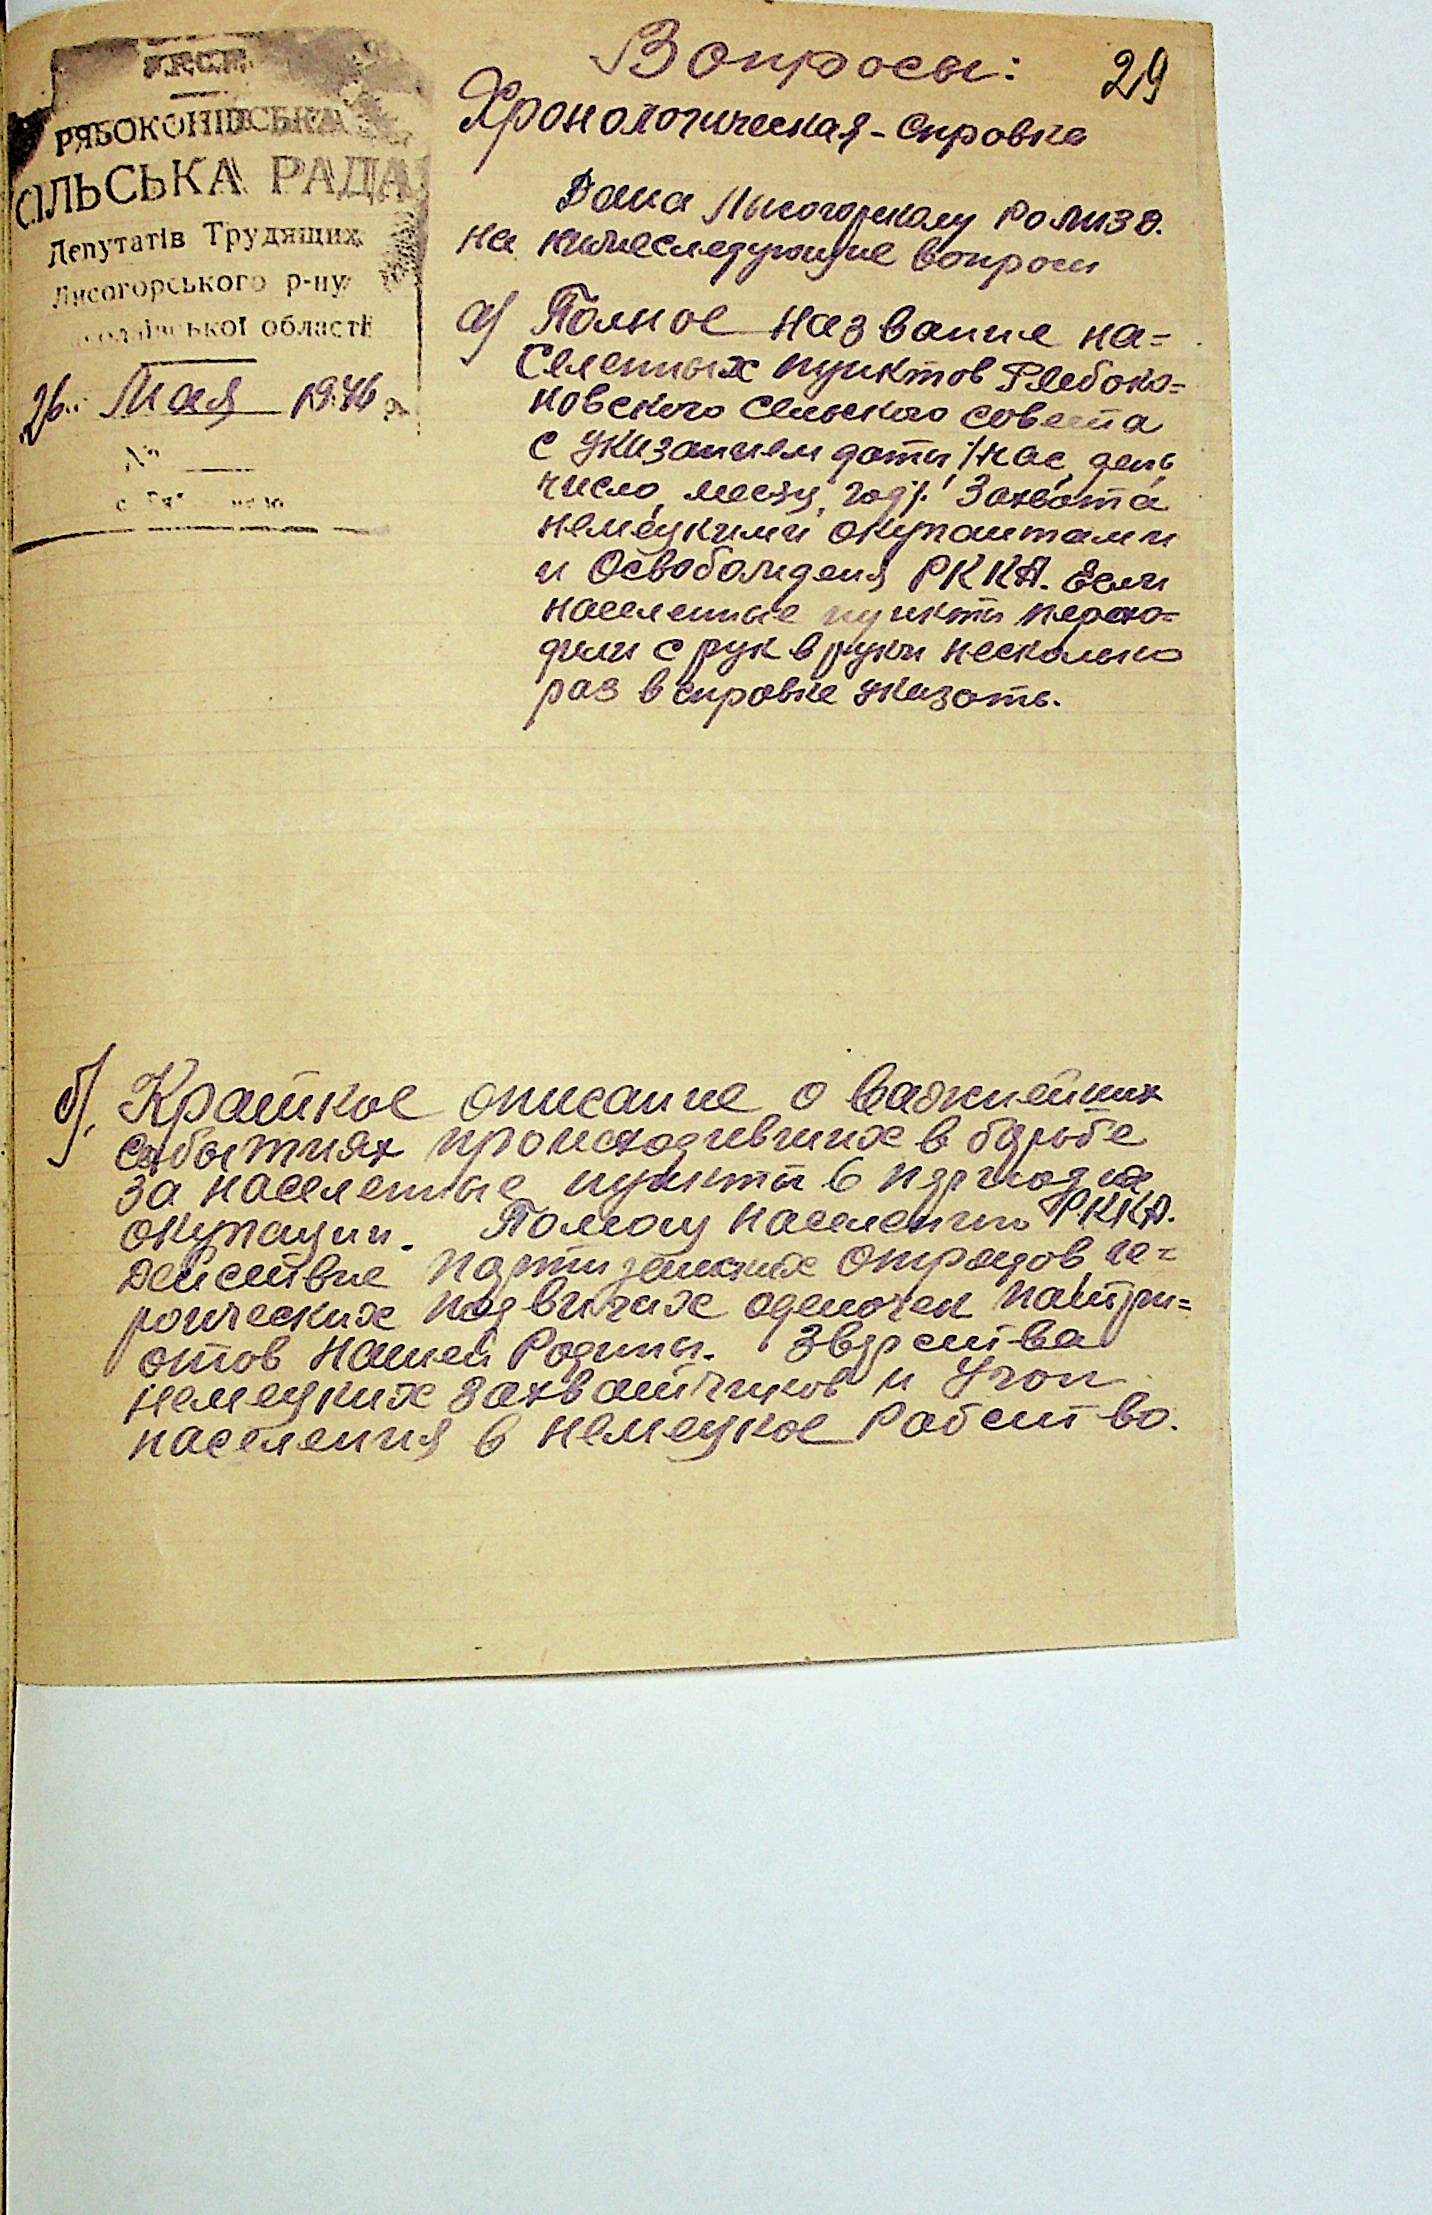 УРСР
РЯБОКОНІВСЬКА
СІЛЬСЬКА РАДА
Депутатів Трудящих
Лисогорського р-ну
області
26 Мая 1946 р.
№
Вопросы: 29
Хронологическая-справка
Дана Лысогорскому
на нижеследующие вопросы
а) Полное название на=
селенных пунктов Рябоко=
новского сельского совета
с указанием даты /час, день,
число, месяц, год/. Захвата
немецкими окупантами
и Освобождения РККА. Если
населенные пункты перехо=
дили с рук в руки несколько
раз в справке указать.
б). Краткое описание о важнейших
событиях происходивших в борьбе
за населенные пункты в период ее
окупации. Помощу населению РККА.
Действие партизанских отрядов ге=
роических подвигах оденочек патри=
отов Нашей Родины. Зверства
немецких захватчиков и Угон
населения в немецкое Рабство.